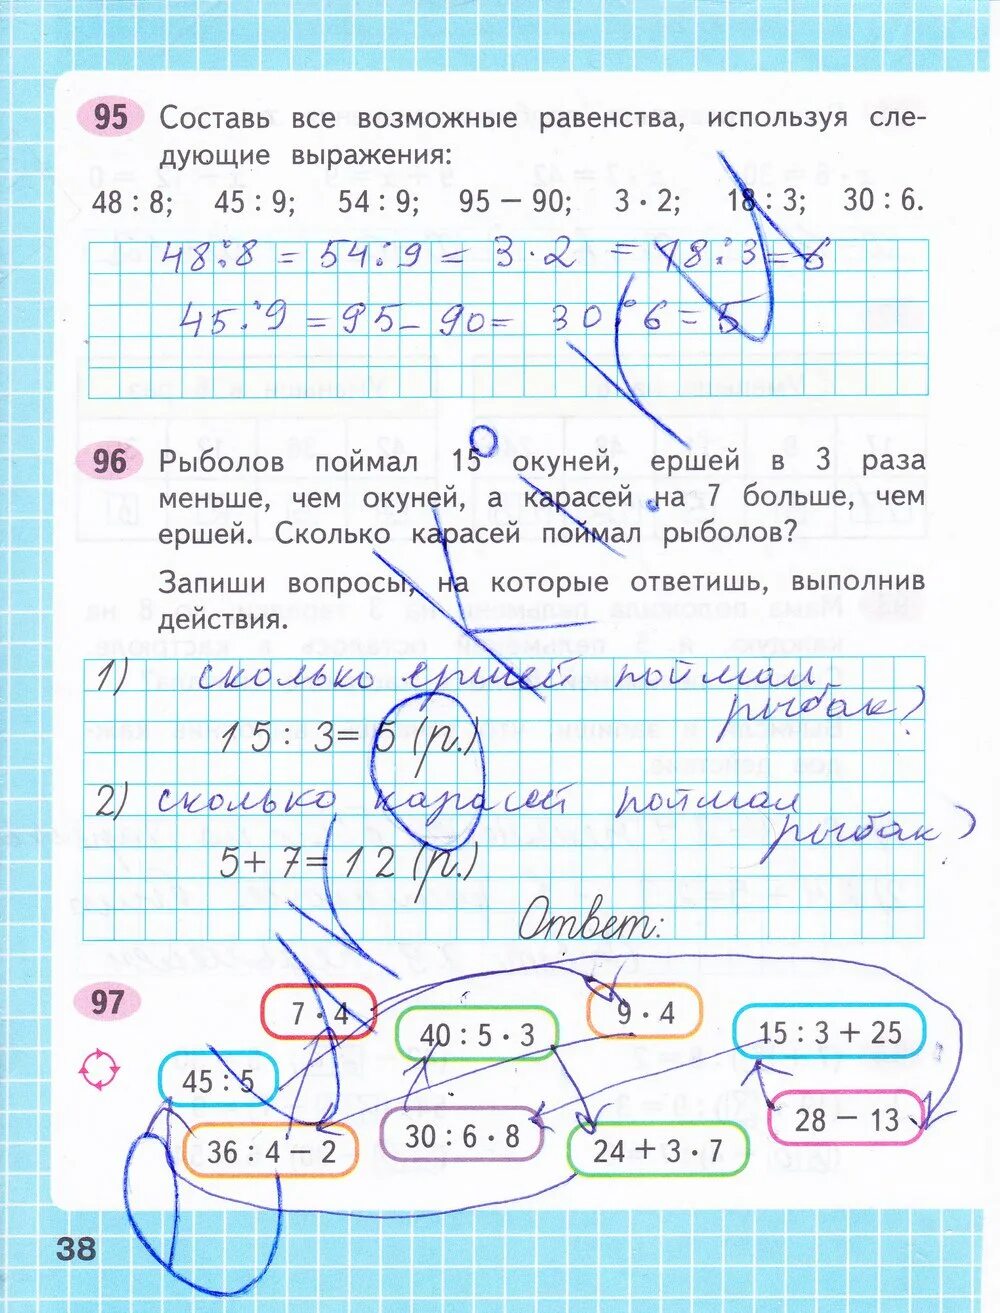 95 Составь все возможные равенства, используя сле-
дующие выражения:
48 : 8; 45 : 9; 54 : 9; 95 − 90; 3 · 2; 18 : 3; 30 : 6.
48:8 = 54:9 = 3·2 = 18:3 = 6
45:9 = 95-90= 30:6=5
96 Рыболов поймал 15 окуней, ершей в 3 раза
меньше, чем окуней, а карасей на 7 больше, чем
ершей. Сколько карасей поймал рыболов?
Запиши вопросы, на которые ответишь, выполнив
действия.
1) сколько ершей поймал
рыбак?
15:3=5(р.)
2) сколько карасей поймал
рыбак?
5+7=12(р.)
Ответ:
97
7 · 4
40 : 5 · 3
9 · 4
15 : 3 + 25
45 : 5
36 : 4 − 2
30 : 6 · 8
24 + 3 · 7
28 − 13
38